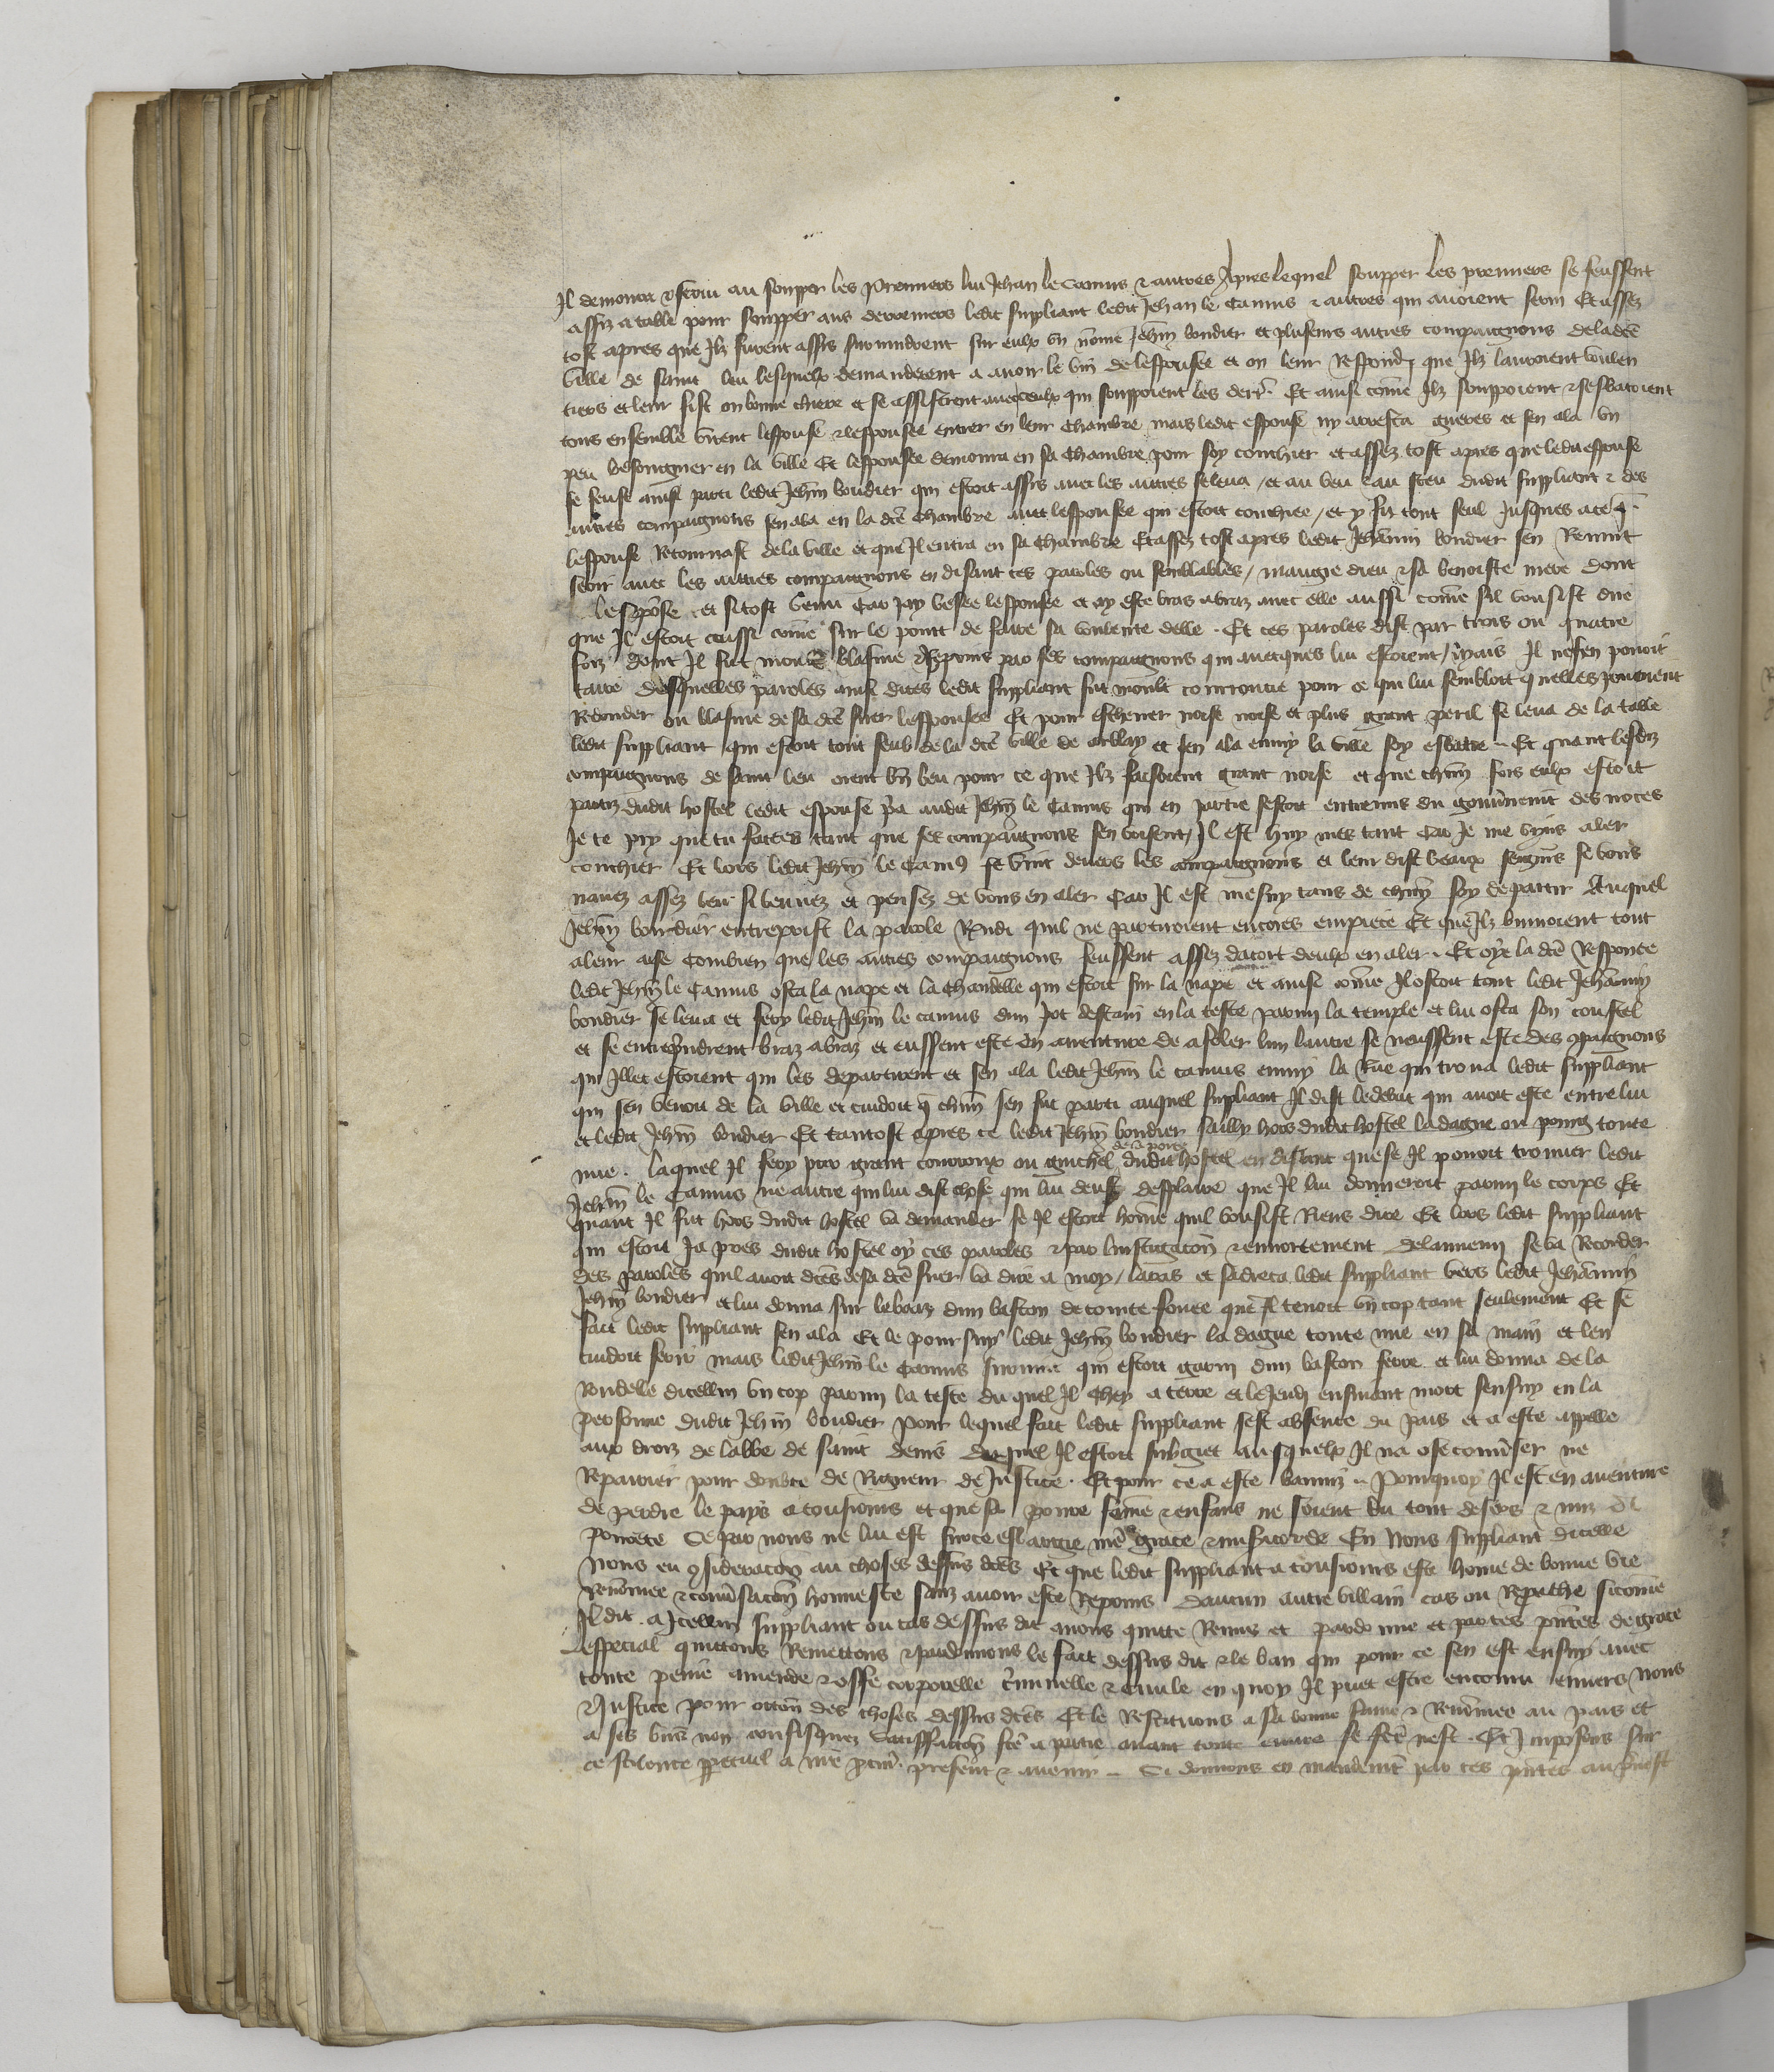 Il demoura & servi au soupper les premiers lui Jehan le Camus & autres Apres lequel soupper les premiers se feussent
assis a table pour soupper aus derreniers ledit suppliant ledit Jehan le Camus & autres qui avoient servi Et assez
tost apres que Ilz furent assis survindrent sur eulx un nõme Jehñ boudier et plusieurs autres compaignons de la dcẽ
ville de saint leu lesquelx demanderent a avoir le vin de lespousee et on leur respondi que Ilz lauroient voulen
tiers et leur fist on bonne chiere et se assistrent avec ceulx qui souppoient les derrˢ. Et ainsi cõme Ilz souppoient & sesbatoient
tous ensemble virent lespouse & lespousee entrer en leur chambre mais ledit espouse ny arresta gueres et sen ala un
peu besoingner en la ville Et lespousee demoura en sa chambre pour soy couchier et assez tost apres que ledit espouse
se feust ainsi parti ledit Jehñ boudier qui estoit assis avec les autres se leva / et au veu & au sceu dudit suppliant & des
autres compaignons sen ala en la dcẽ chambre avec lespousee qui estoit couchiee / et y fu tout seul jusques a ce q̃
lespouse retournast de la ville et que Il entra en sa chambre Et assez tost apres ledit Jehãnin boudier sen revint
seoir avec les autres compaignons en disant ces paroles ou semblables / maugre dieu & sa benoiste mere dont
lespõse est si tost venu Car Jay besee lespousee et ay este bras a braz avec elle aussi cõme sil vousist dire
que Il estoit aussi cõme sur le point de faire sa voulente delle. Et ces paroles dist par trois ou quatre
foiz dont Il fut moult blasme & repris par ses compaignons qui avecques lui estoient / mais Il ne sen povoit
taire Desquelles paroles ainsi dites ledit suppliant fut moult courroucie pour ce qui lui sembloit quelles povoient
redonder ou blasme de sa dcẽ suer lespousee Et pour eschever noise noise et plus grant peril se leva de la table
ledit suppliant qui estoit tout seul de la dcẽ ville de et sen ala emmy la ville soy esbatre .. Et quant lesdiz
compaignons de saint leu orent bñ beu pour ce que Ilz faisoient grant noise et que chũn fors eulx estoit
partiz dudit hostel ledit espouse p̃a audit Jehñ le Camus qui en partie sestoit entremis du gouv̾nemẽt des noces
Je te pry que tu faces tant que ses compaignons sen voisent / Il est huy mes tart Car Je me vueil aler
couchier Et lors ledit Jehñ le Camꝰ se vint devers les compaignons et leur dist beaux seigñs se vous
navez assez beu si bevez et pensez de vous en aler Car Il est meshuy tans de chũn soy departir Auquel
Jehñ boudier entreprist la parole Rendi quil ne partiroient encores empiece Et que Ilz buvroient tout
a leur aise Combien que les autres compaignons feussent assez dacort deulx en aler. Et oÿe la dcẽ response
ledit Jehñ le Camus osta la nape et la chandelle qui estoit sur la nape et ainsi cõme Il ostoit tout ledit Jehãnin
boudier se leva et fery ledit Jehñ le camus dun pot destain en la teste parmi la temple et lui osta son coustel
et se entrep̃ndrent braz a braz et eussent este en aventure de afoler lun lautre se neussent este des ꝯpaignons
qui Illec estoient qui les departirent et sen ala ledit Jehñ le camus emmy la Rue qui trouva ledit suppliant
qui sen venoit de la ville et cuidoit q̃ chũn sen fut parti auquel suppliant Il dist le debat qui avoit este entre lui
et ledit Jehñ boudier Et tantost apres ce ledit Jehñ boudier sailly hors dudit hostel la dague ou poing toute
nue. laquel Il fery par grant courroux ou guichel dudit hostel en disant que se Il povoit trouver ledit
Jehñ le Camus ne autre qui lui dist chose qui lui deust desplaire que Il lui donneroit parmi le corps Et
quant Il fut hors dudit hostel va demander se Il estoit hõme quil vousist Riens dire Et lors ledit suppliant
qui estoit Ja pres dudit hostel oÿ ces paroles & par linstigacõn & ennortement de lannemy se va Recorder
des paroles quil avoit dcẽs de sa dcẽ suer va dire a moy / et sadreca ledit suppliant vers ledit Jehãnin
Jehñ boudier et lui donna sur le braz dun baston de que Il tenoit un cop tant seulement Et se
fait ledit suppliant sen ala Et le poursuÿ ledit Jehñ boudier la dague toute nue en sa main et len
cuidoit ferir mais ledit Jehñ le Camus survint qui estoit garni dun baston ferre et lui donna de la
Rondelle dicellui un cop parmi la teste du quel Il chey a terre et le Jeudi ensuivant mort sensuy en la
personne dudit Jehñ boudier Pour lequel fait ledit suppliant sest absente du pais et a este appelle
aux droiz de labbe de saint denis duquel Il estoit subgiet ausquelx Il na ose comparoir ne
Repairier pour doubte de Rigueur de Justice. Et pour ce a este banniz .. Pourquoy Il est en aventure
de perdre le pays a tousiours et que sa povre fẽme & enfans ne soient du tout desers & mis a
povrete Se par nous ne lui est sur ce eslargie nr̃e grace & misericorde En Nous suppliant dicelle
Nous eu ꝯsideracõn au choses dessus dcẽs Et que ledit suppliant a tousiours este hõme de bonne vie
Renõmee & cõnv̾sacõn honneste sanz avoir este Repris daucun autre villain cas ou Reprouche sicõme
Il dit. a Icellui suppliant ou cas dessus dit avons quitte Remis et pardonne et par ces p̃ntes de grace
especial quittons Remettons & pardonnons le fait dessus dit & le ban qui pour ce sen est ensuy avec
toute peine amende & offẽse corporelle c̾minelle & civile en quoy Il puet estre encouru envers nous
& Justice pour occõn des choses dessus dcẽs Et le Restituons a sa bonne fame & Renõmee au pais et
a ses biens non confisquez Satisfacõn fcẽ a partie avant toute euvre se fcẽ nest. Et Imposons sur
ce scilence ꝑpetuel a nr̃e ꝓcur̃. present & avenir .. Si donnons en mandemẽt par ces p̃ntes au p̃vost